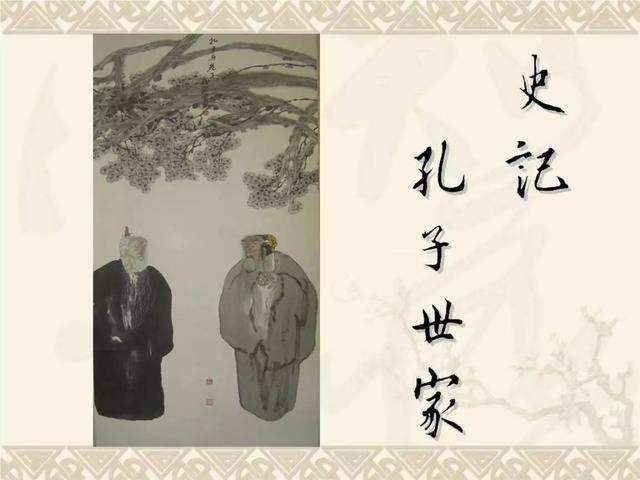 史记
孔子世家